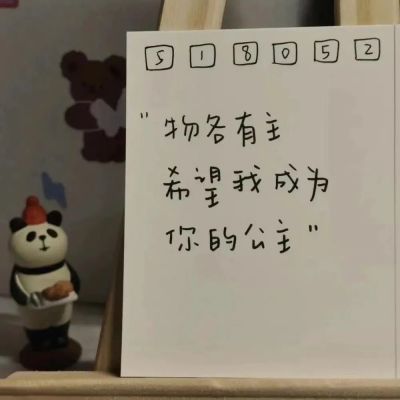 518052
"物各有主
希望我成为
你的公主"